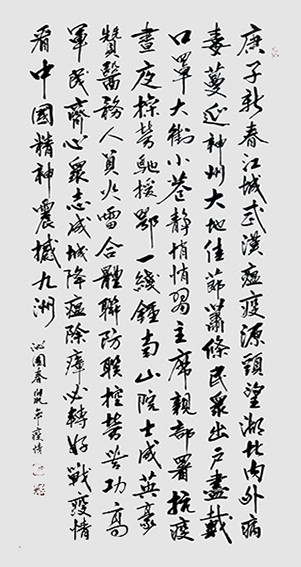 庚子新春江城武漢瘟疫源頭望湖北内外病
毒蔓延神州大地佳節蕭條民衆出户盡戴
口罩大街小巷静悄悄習主席親部署抗疫
晝夜操勞馳援鄂一綫鍾南山院士成英豪
贊醫務人員火雷合體聯防联控勞苦功高
軍民齊心衆志成城降瘟除瘴必轉好戰疫情
看中國精神震撼九洲
沁園春 疫情